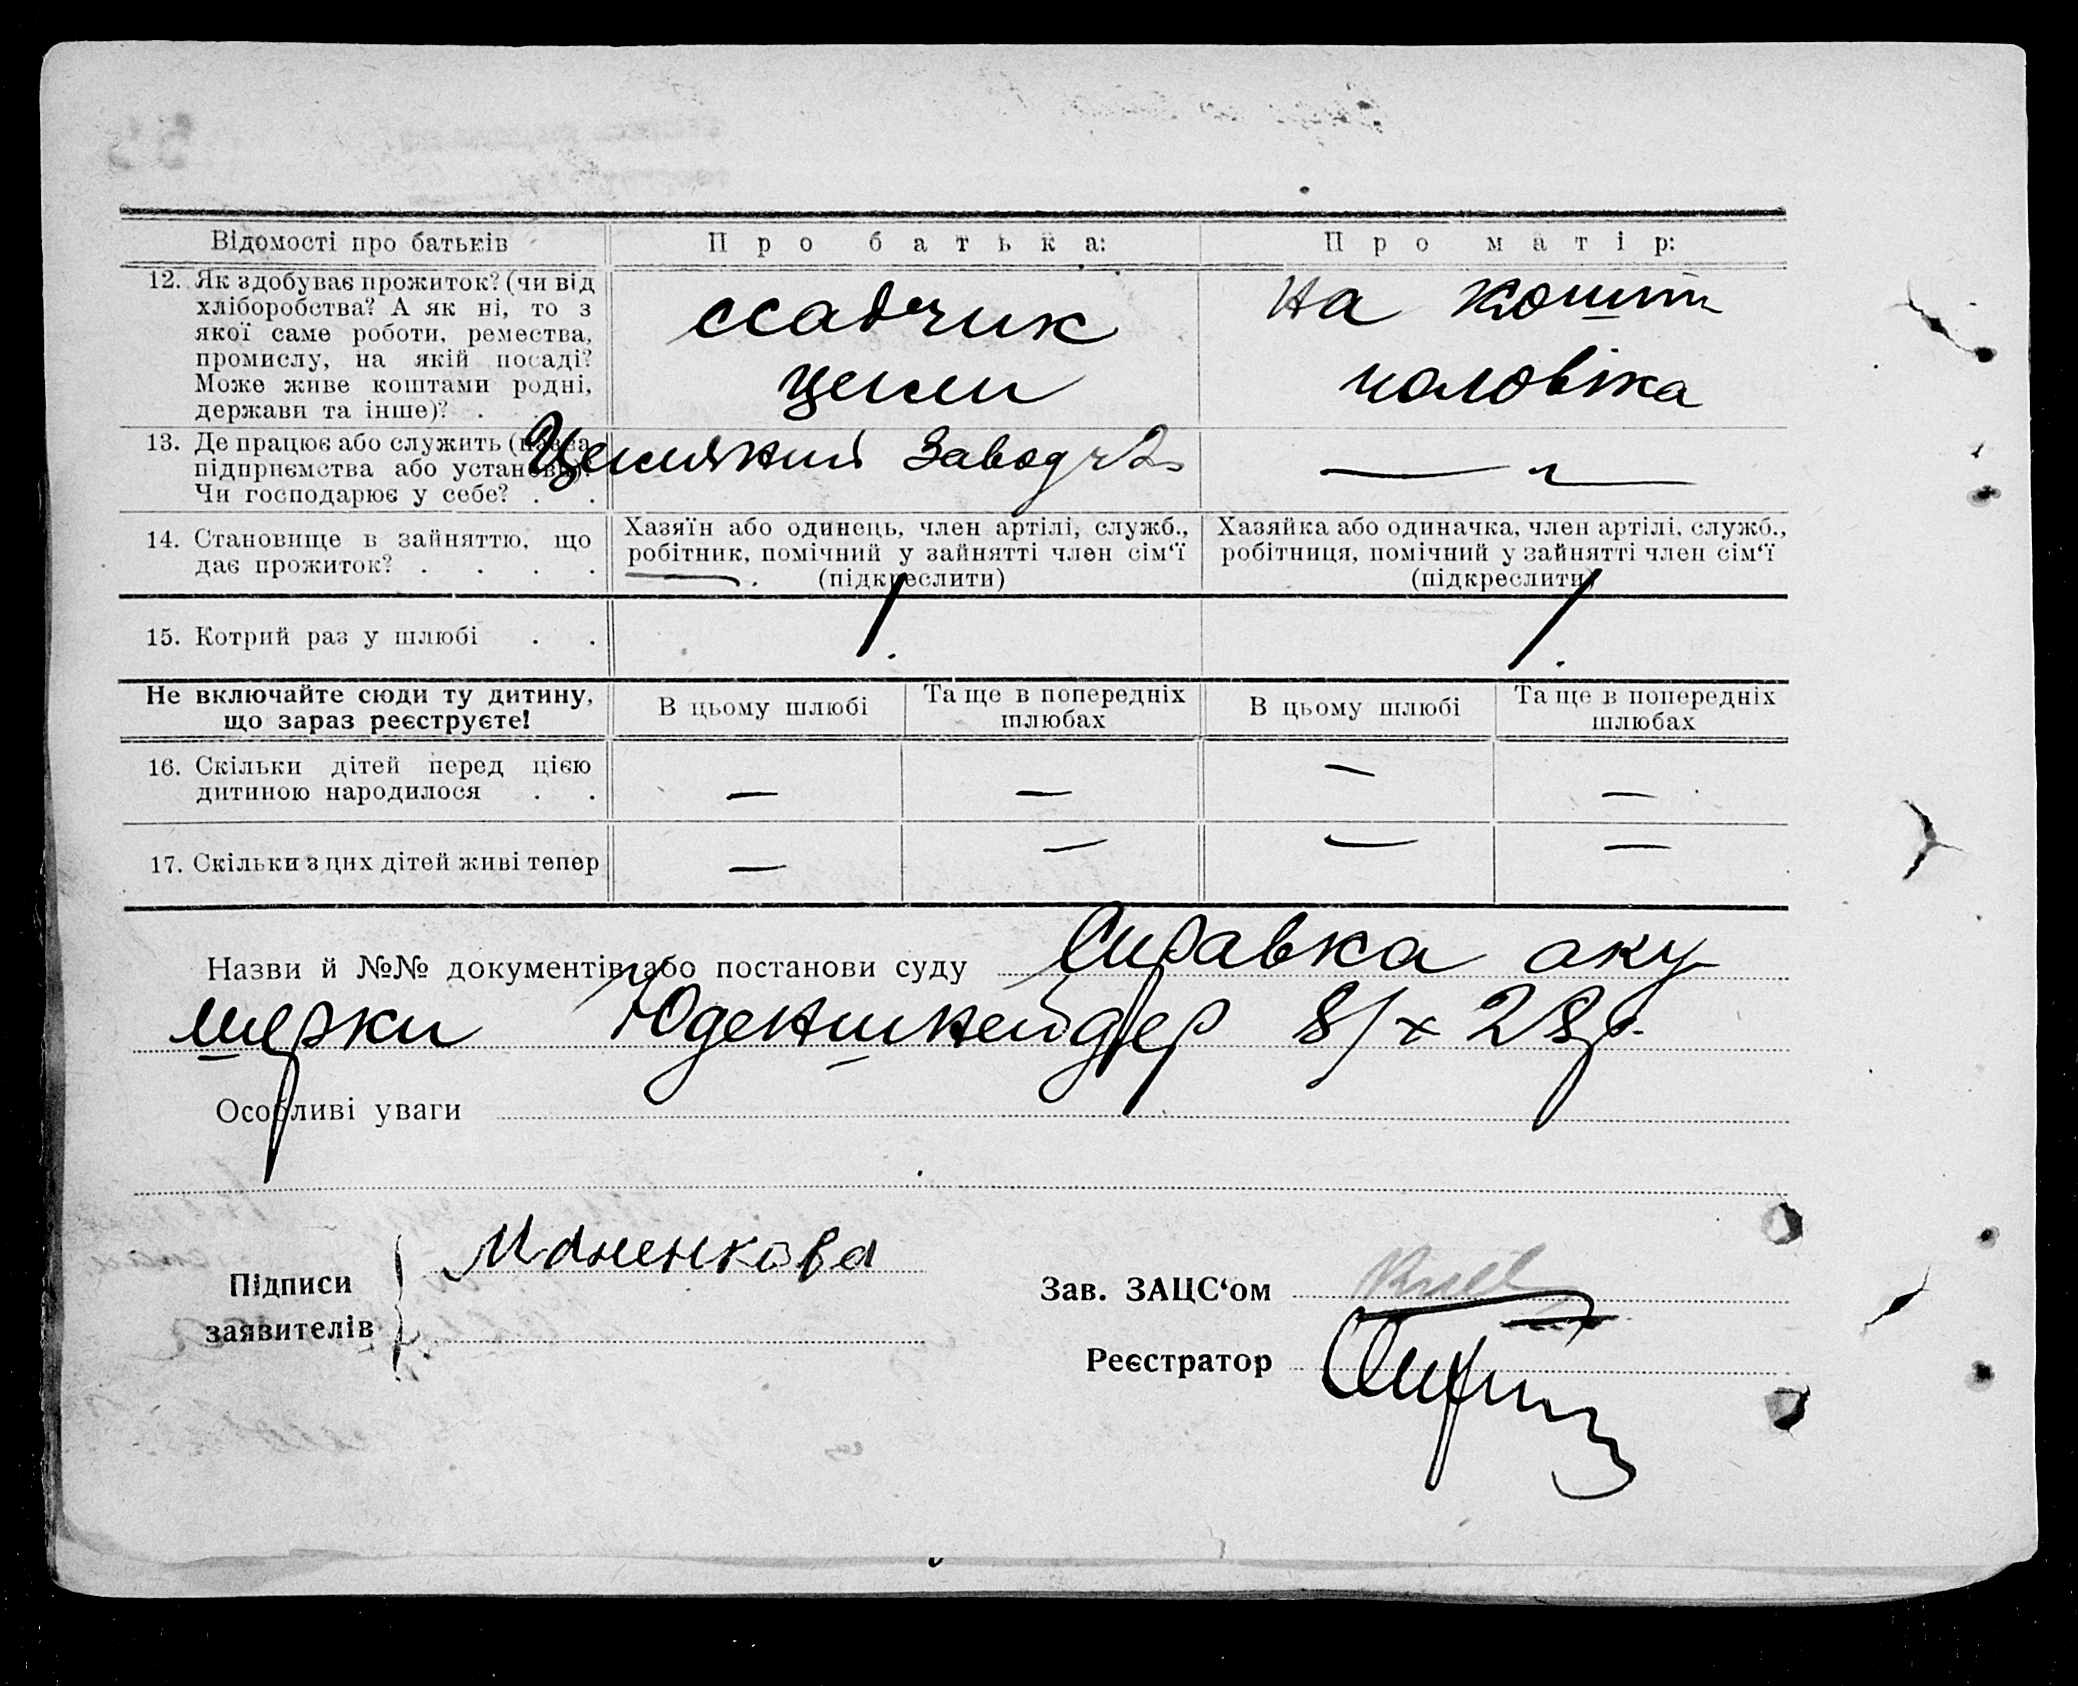 Відомості про батьків
Про батька:
Про матір:
12. Як здобуває прожиток? (чи від
хліборобства? А як ні, то з
якої саме роботи, ремества,
промислу, на якій посаді?
Може живе коштами родні,
держави та інше)? .
ссадчик
цегли
на кошти
чоловіка
13. Де працює або служить (назва
підприємства або установи)?
Чи господарює у себе? . .
Цегляний Завод ч 2
— " —
14. Становище в зайняттю, що
дає прожиток? . . . .
Хазяїн або одинець, член артілі, служб.,
робітник, помічний у зайнятті член сім'ї
(підкреслити)
Хазяйка або одиначка, член артілі, служб.,
робітниця, помічний у зайнятті член сім'ї
(підкреслити)
15. Котрий раз у шлюбі . .
1.
1.
Не включайте сюди ту дитину,
що зараз реєструєте!
В цьому шлюбі
Та ще в попередніх
шлюбах
В цьому шлюбі
Та ще в попередніх
шлюбах
16. Скільки дітей перед цією
дитиною народилося . .
— — — —
17. Скільки з цих дітей живі тепер
— — — —
Назви й №№ документів або постанови суду Справка аку
шерки Юденшнейдер 8/x 28р.
Особливі уваги
Підписи
заявителів
Маненкова
Зав. ЗАЦС'ом
Реєстратор